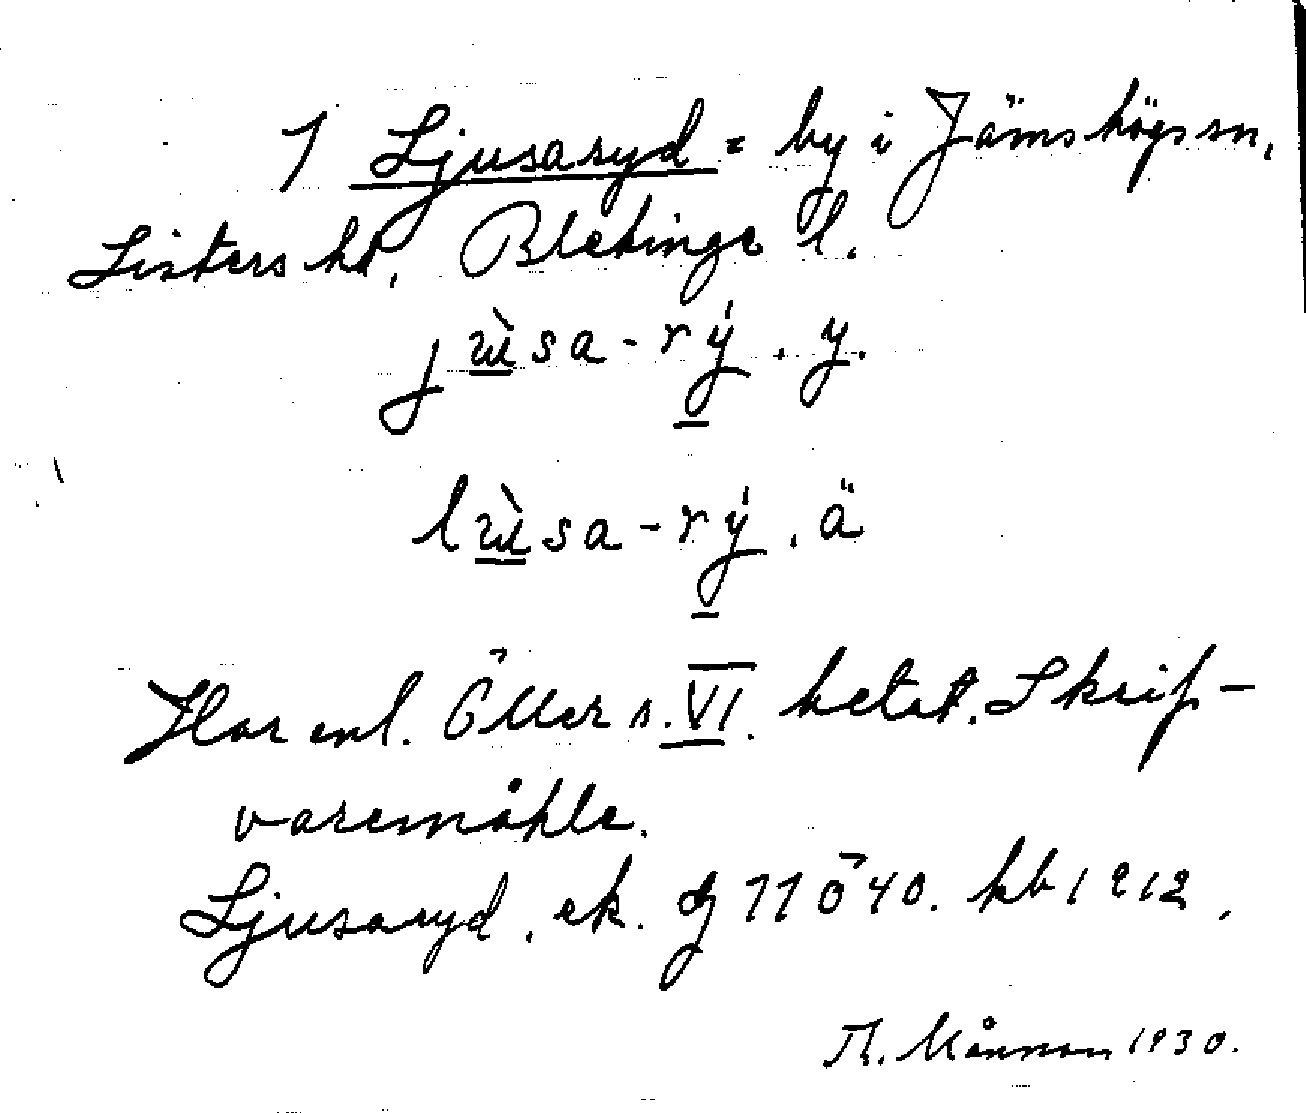 1 Ljusaryd = by i Jämshögs sn,
Listers hd, Blekinge l.
jùsa-rý, y.
lùsa-rý, ä
Har enl. Öller s. VI betat. Skrif-
varemåhle.
Ljusaryd, ek. 11 ö 40. kb 1912.
Th. 1930.